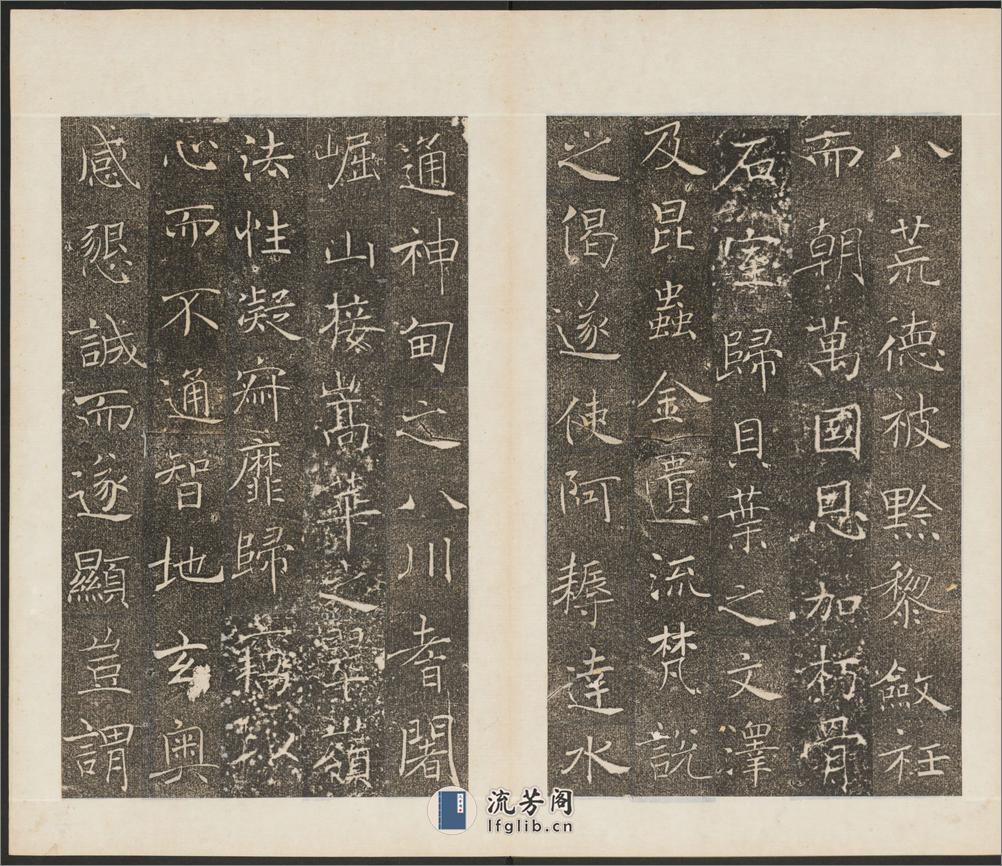 八荒德被黔黎斂衽
而朝萬國恩加朽骨
石室歸貝葉之文澤
及昆蟲金匱流梵說
之偈遂使阿耨達水
通神甸之八川耆闍
崛山接嵩華之翠嶺
法性凝寂靡歸竊以
心而不通智地玄奧
感懇誠而遂顯豈謂
流芳阁
lfglib.cn